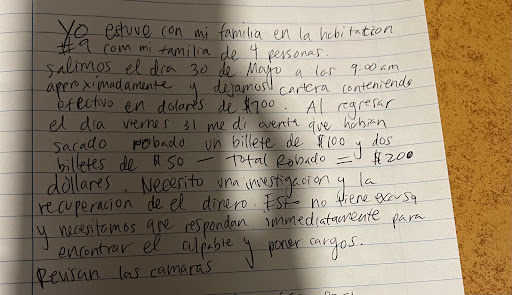 Yo estuve con mi familia en la habitation
#9 com mi familia de 4 personas.
salimos el dia 30 de Mayo a las 9:00 am
aperoximadamente y dejamos cartera conteniendo
efectivo en dolares de $700. Al regresar
el dia viernes 31 me di cuenta que habian
sacado robado un billete de $100 y dos
billetes de $50 — Total Robado = $200
dollares. Necesito una investigacion y la
recuperacion de el dinero. Esto no tiene excusa
y necesitamos que respondan immediatamente para
encontrar el culpable y poner cargos.
Revisan las camaras